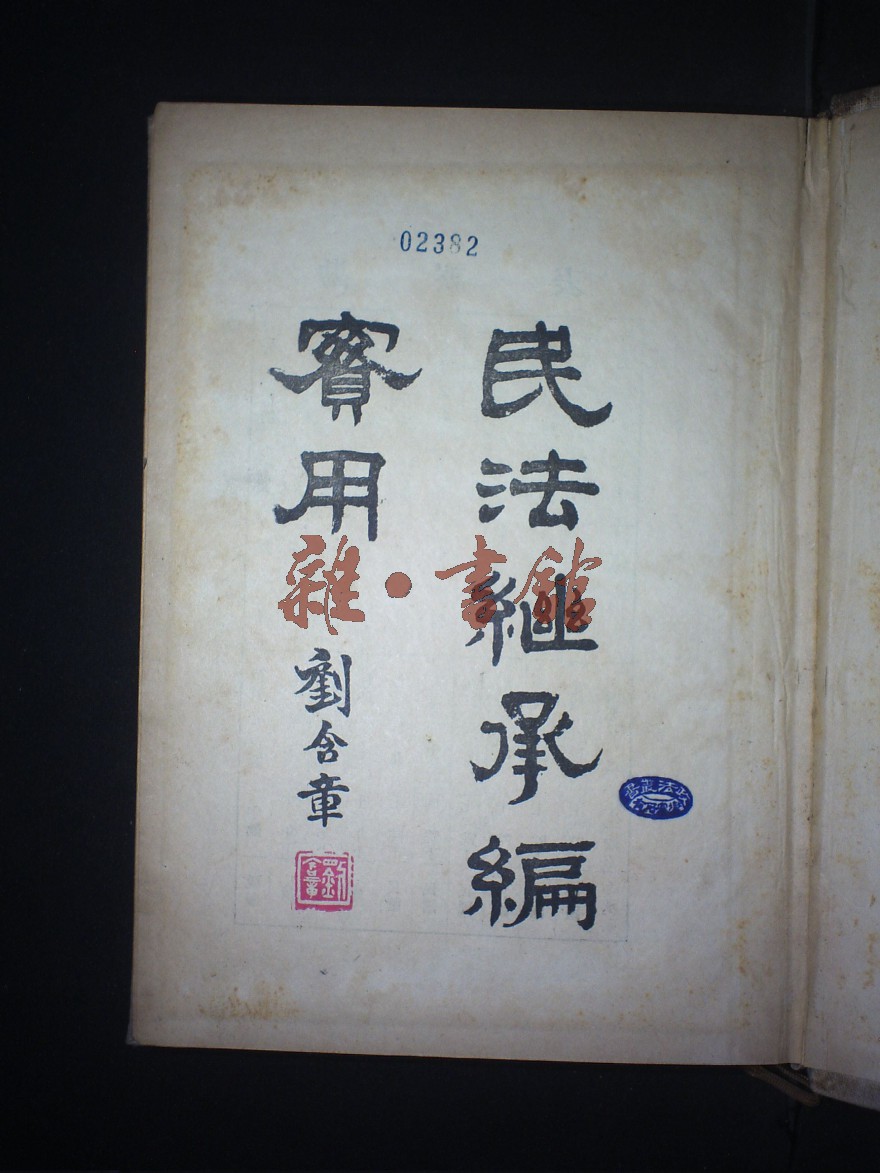 02382
民法繼承編
實用
劉含章
劉含章
雜·書館